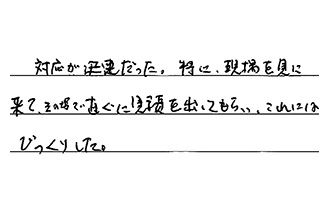 対応が迅速だった。特に、現場を見に
来て、その場で直ぐに見積を出してもらい、これには
びっくりした。